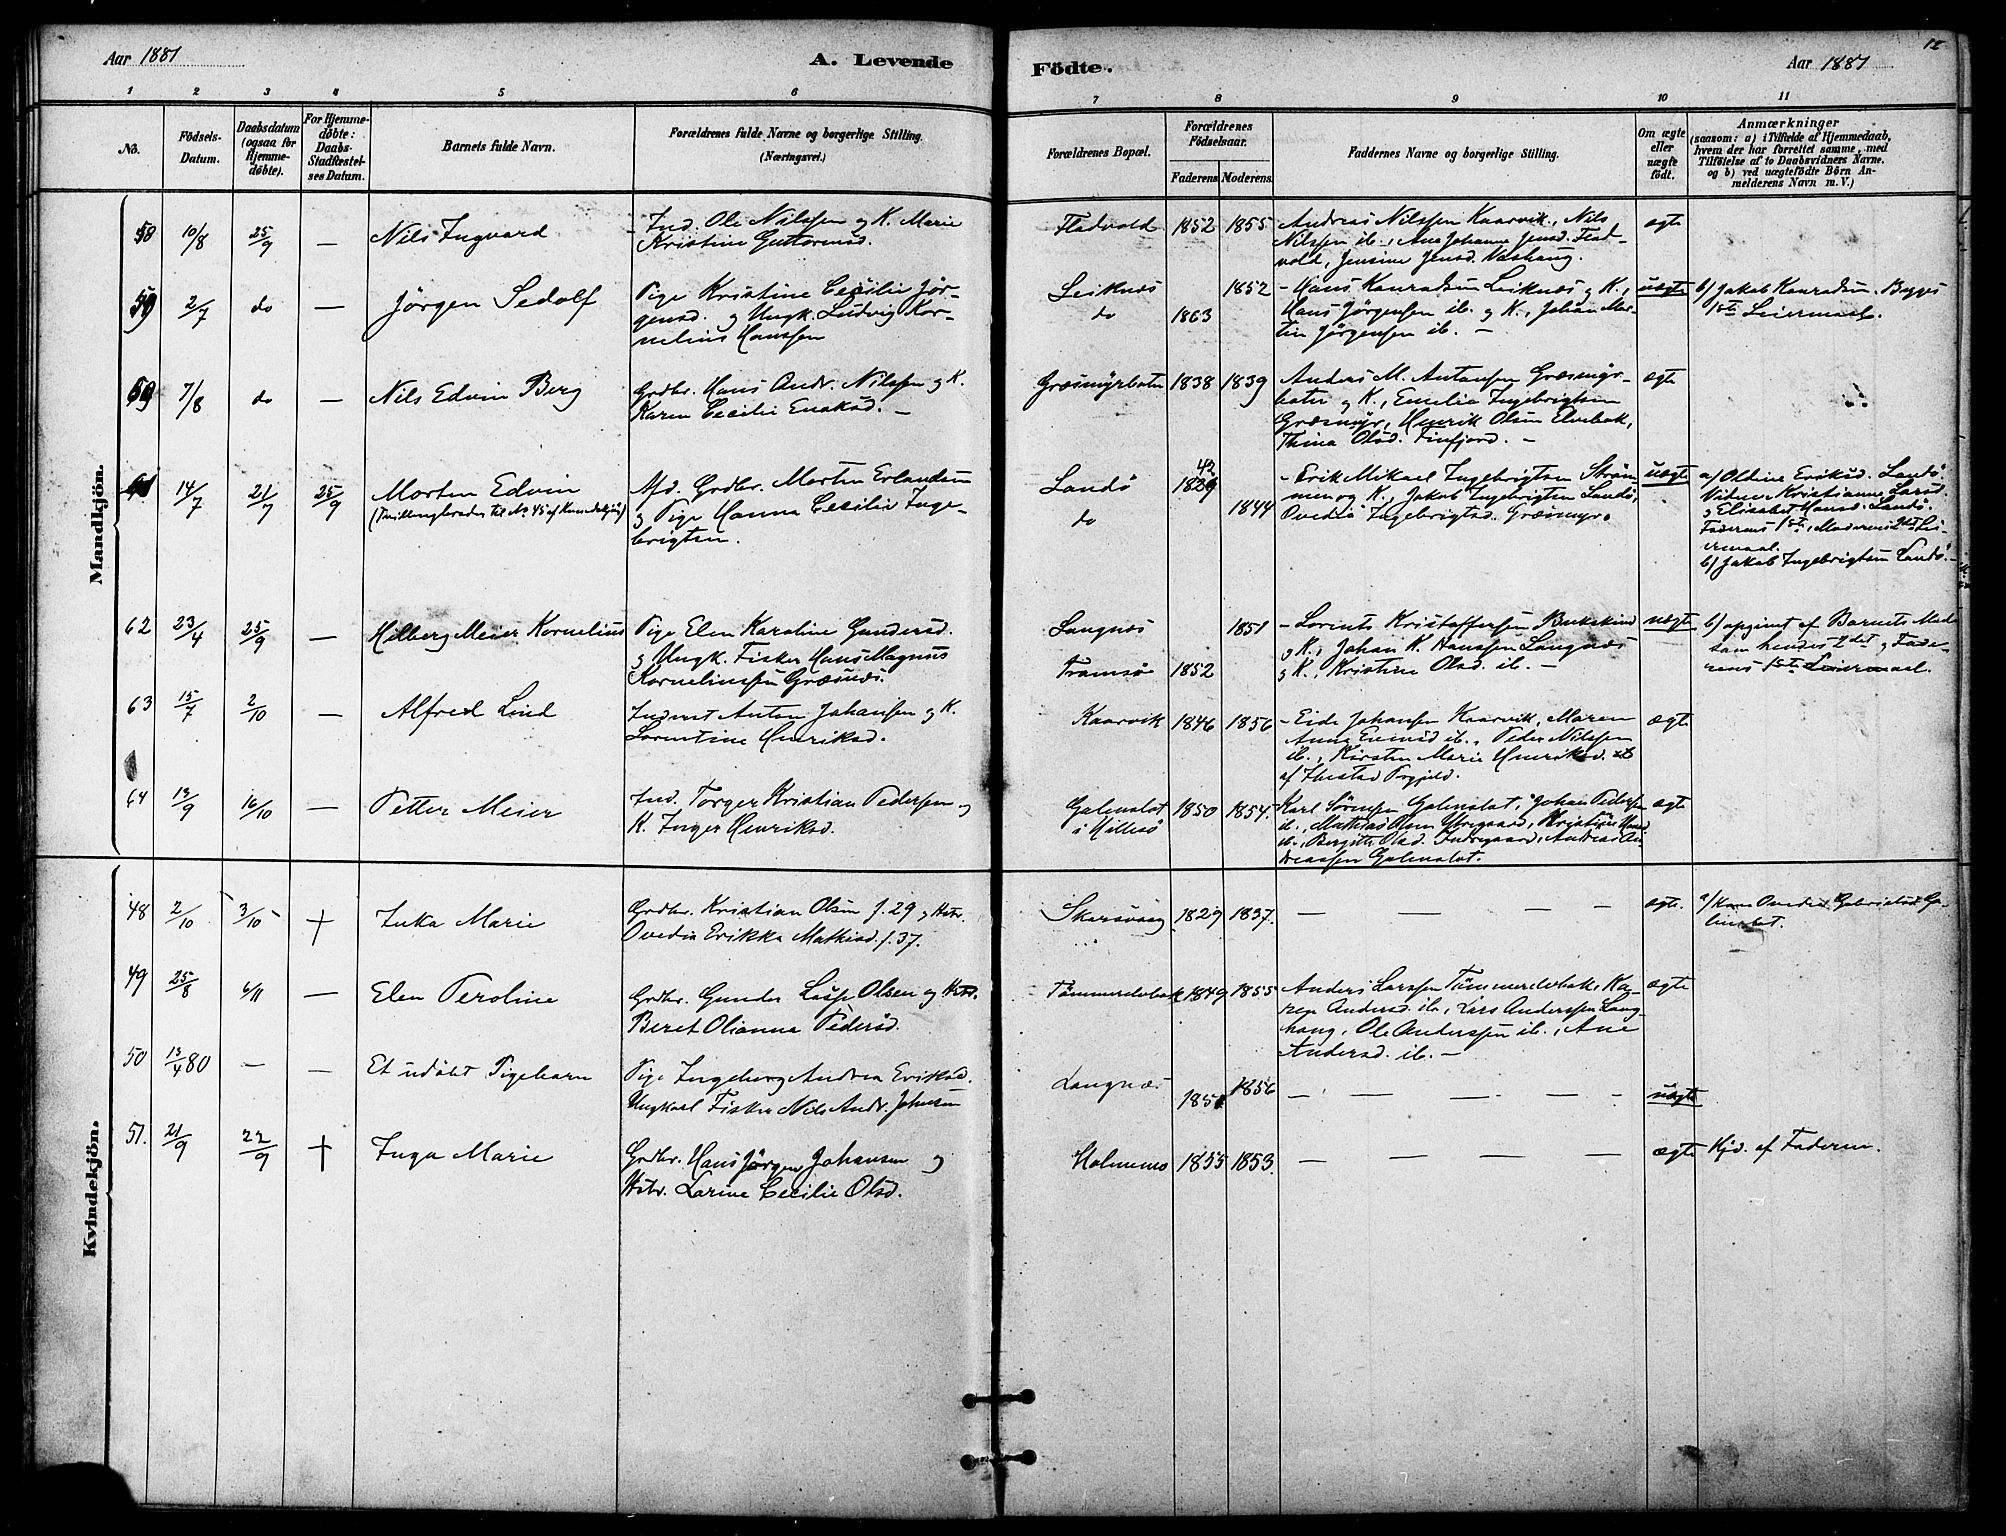 Aar 1881
A. Levende
Födte.
Aar 1881
12
1 2 3 4 5 6 7 8 9 10 11
No.
Födsels-
Datum.
Daabsdatum
(ogsaa for
Hjemme-
døbte).
For Hjemme-
døbte:
Daabs-
Stadfæstel-
ses Datum.
Barnets fulde Navn.
Forældrenes fulde Navne og borgerlige Stilling.
(Næringsvei.)
Forældrenes Bopæl.
Forældrenes
Födselsaar.
Faderens Moderens
Faddernes Navne og borgerlige Stilling.
Om ægte
eller
uægte
født.
Anmærkninger
(saasom: a) i Tilfælde af Hjemmedaab,
hvem der har forrettet samme, med
Tilföielse af to Daabsvidners Navne.
og b) ved uægtefödte Börn An-
melderens Navn m. V.)
Mandkjön.
58 10/8 25/9 — Nils Ingvard
Ind. Ole Nilssen og K. Marie
Kristine Guttormsd.
Fladvold 1852 1855
Andreas Nilssen Kaarvik, Nils
Nilssen ib., Ane Johanne Jensd. Flad-
vold, Jensine Jensd. Vashaug.
ægte
59 2/7 do — Jörgen Sedolf
Pige Kristine Cecilie Jör-
gensd. og Ungk. Ludvig Kor-
nelius Hanssen
Leiknæs 1852
do 1863
– Hans Konradsen Leiknæs og K.,
Hans Jörgensen ib. og K., Johan Mar-
tin Jörgensen ib. –
uægte
b) Jakob Konradsen. Begges
1ste Leiermaal.
7/8 do — Nils Edvin Berg
Grdbr. Hans Andr. Nilssen og K.
Karen Cecilie Enoksd. –
Græsmyrboten 1838 1839
Anders M. Antonsen Græsmyr-
boten og K., Emelie Ingebrigtsen
Græsmyr, Henrik Olsen Elvebak,
Thina Olsd. Finfjord. –
ægte
61 14/7 21/7 25/9 Morten Edvin
(Tvillingbroder til No 45 af Kvindekjön)
Afd. Grdbr. Morten Erlandsen
og Pige Hanna Cecilie Inge-
brigtsen.
Sandö 42
1829
do 1844
– Erik Mikael Ingebrigtsen Ström-
men og K., Jakob Ingebrigtsen Sandö,
Ovedia Ingebrigtsd. Græsmyr.
uægte
a/ Oldine Eriksd. Sandö.
Vidner Kristianne Larsd.
og Elisabet Hansd. Sandö.
Faderens 1ste, Moderens 2det Lei-
ermaal.
b/ Jakob Ingebrigtsen Sandö. –
62 23/4 25/9 — Hilberg Meier Kornelius
Pige Elen Karoline Gundersd.
og Ungk. Fisker Hans Magnus
Kornelinssen Græsnæs.
Langnæs 1851
Tromsö 1852
– Lorents Kristoffersen Bukskind
og K., Johan K. Hanssen Langnæs
og K., Kristine Olsd. ib. –
uægte
b) opgivet af Barnets Moder
som hendes 2det og Fade-
rens 1ste Leiermaal.
63 15/7 2/10 — Alfred Lind
Inderst Anton Johansen og K.
Lorentine Henriksd.
Kaarvik 1846 1856
– Eide Johansen Kaarvik, Maren
Anna Evensd ib., Peder Nilssen
ib., Kirsten Marie Henriksd.
af Ibestad Prgjeld.
ægte
64 13/9 16/10 — Petter Meier
Ind. Torger Kristian Pedersen og
K. Inger Henriksd.
Golenslot
i Hillesö 1850 1854.
Karl Sörensen Golenslot, Johan Pedersen
ib., Mathias Olsen Ytregaard, Kristine Hansd
ib., Bergitte Olsd. Indregaard, Andreas An-
dreassen Golenslot.
ægte
Kvindekjön.
48 2/10 3/10 † Inka Marie
Grdbr. Kristian Olsen f. 29 og Hstr.
Ovedia Erikka Mathisd. f. 37.
Skarsvaag 1829 1837. — — — —
ægte.
a/ Kone Ovedia Gabrielsd Go-
lenslot.
49 25/8 6/11 — Elen Peroline
Grdbr. Gunder Olsen og Hstr.
Beret Olianna Pedersd.
Tömmerelvbak 1849 1855
Anders Larssen Tömmerelvbak, Ka-
ren Andersd. ib., Lars Anderssen Lang-
haug, Ole Anderssen ib., Ane
Andersd. ib. –
ægte
50 13/4 80 — — Et udöbt Pigebarn
Pige Ingeborg Andrea Eriksd.
Ungkarl Fisker Nils Andr. Johnsen
Langnæs 1851 1856 — — — — —
uægte
51. 21/9 22/9 † Inga Marie
Grdbr. Hans Jörgen Johansen og
Hstr. Larine Cecilie Olsd.
Holmenes 1855 1853. — — — — —
ægte
Hjd. af Faderen.